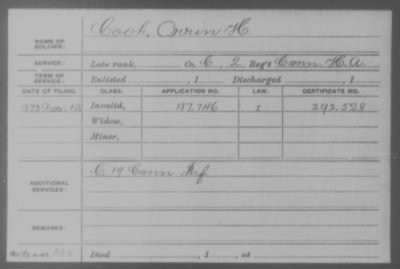 NAME OF SOLDIER: Cook, Orrin H.
SERVICE: Late rank, Co. C, 2 Reg't Conn H.A.
TERM OF SERVICE: Enlisted , 1 Discharged , 1
DATE OF FILING. CLASS. APPLICATION NO. LAW. CERTIFICATE NO.
1873 Nov. 10 Invalid, 187.746 292.528
Widow,
Minor,
ADDITIONAL SERVICES: C. 19 Conn Inf
REMARKS:
Died , 1 , at